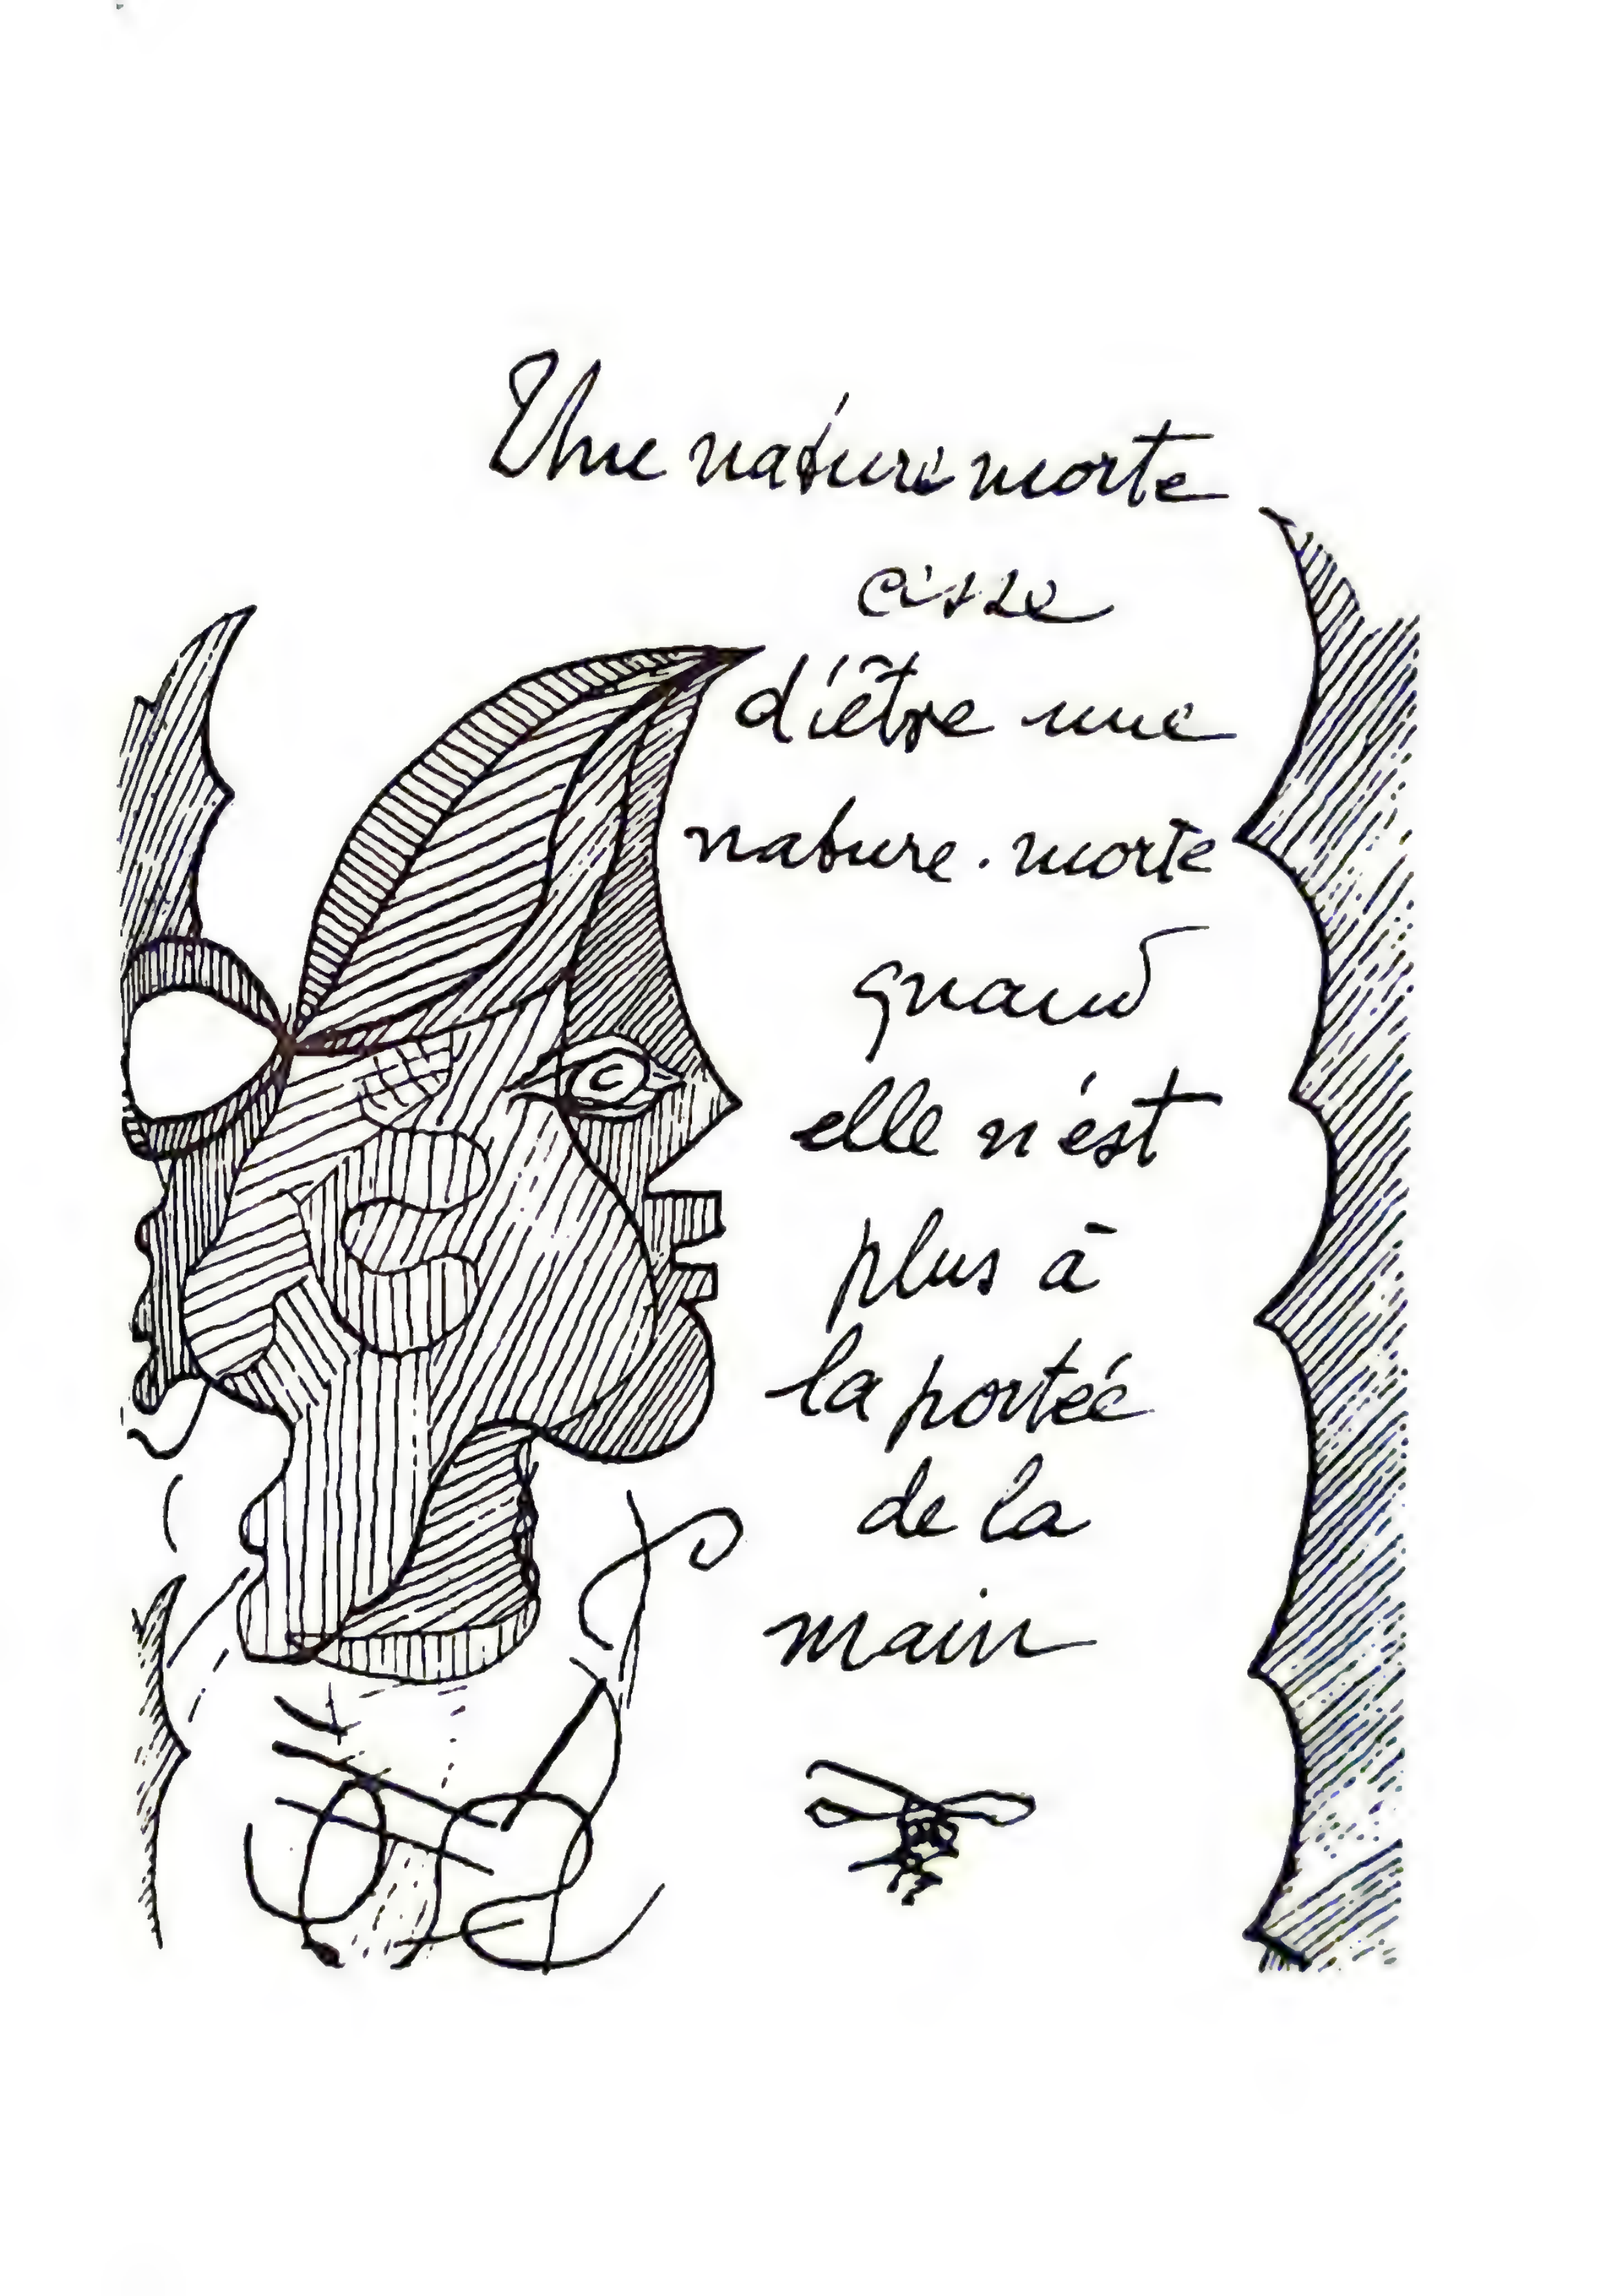 Une nature morte
cesse
d'être une
nature-morte
quand
elle n'est
plus à
la portée
de la
main